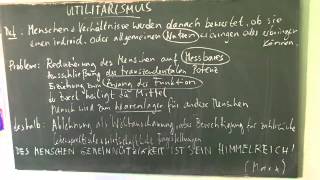 UTILITARISMUS
Def.: Menschen + Verhältnisse werden danach bewertet, ob sie
einen individ. oder allgemeinen Nutzen erbringen oder erbringen
können.
Probleme: Reduzierung des Menschen auf Messbares
Ausschließung des transzendentalen Potenz
Erziehung zum Zugang der Funktion
Zweck heiligt die Mittel
Mensch wird zum Warenlager für andere Menschen
deshalb: Ablehnung als Weltanschauung, aber Berechtigung für zahlreiche
Fragestellungen
DES MENSCHEN GEMEINNÜTZIGKEIT IST SEIN HIMMELREICH!
(Marx)